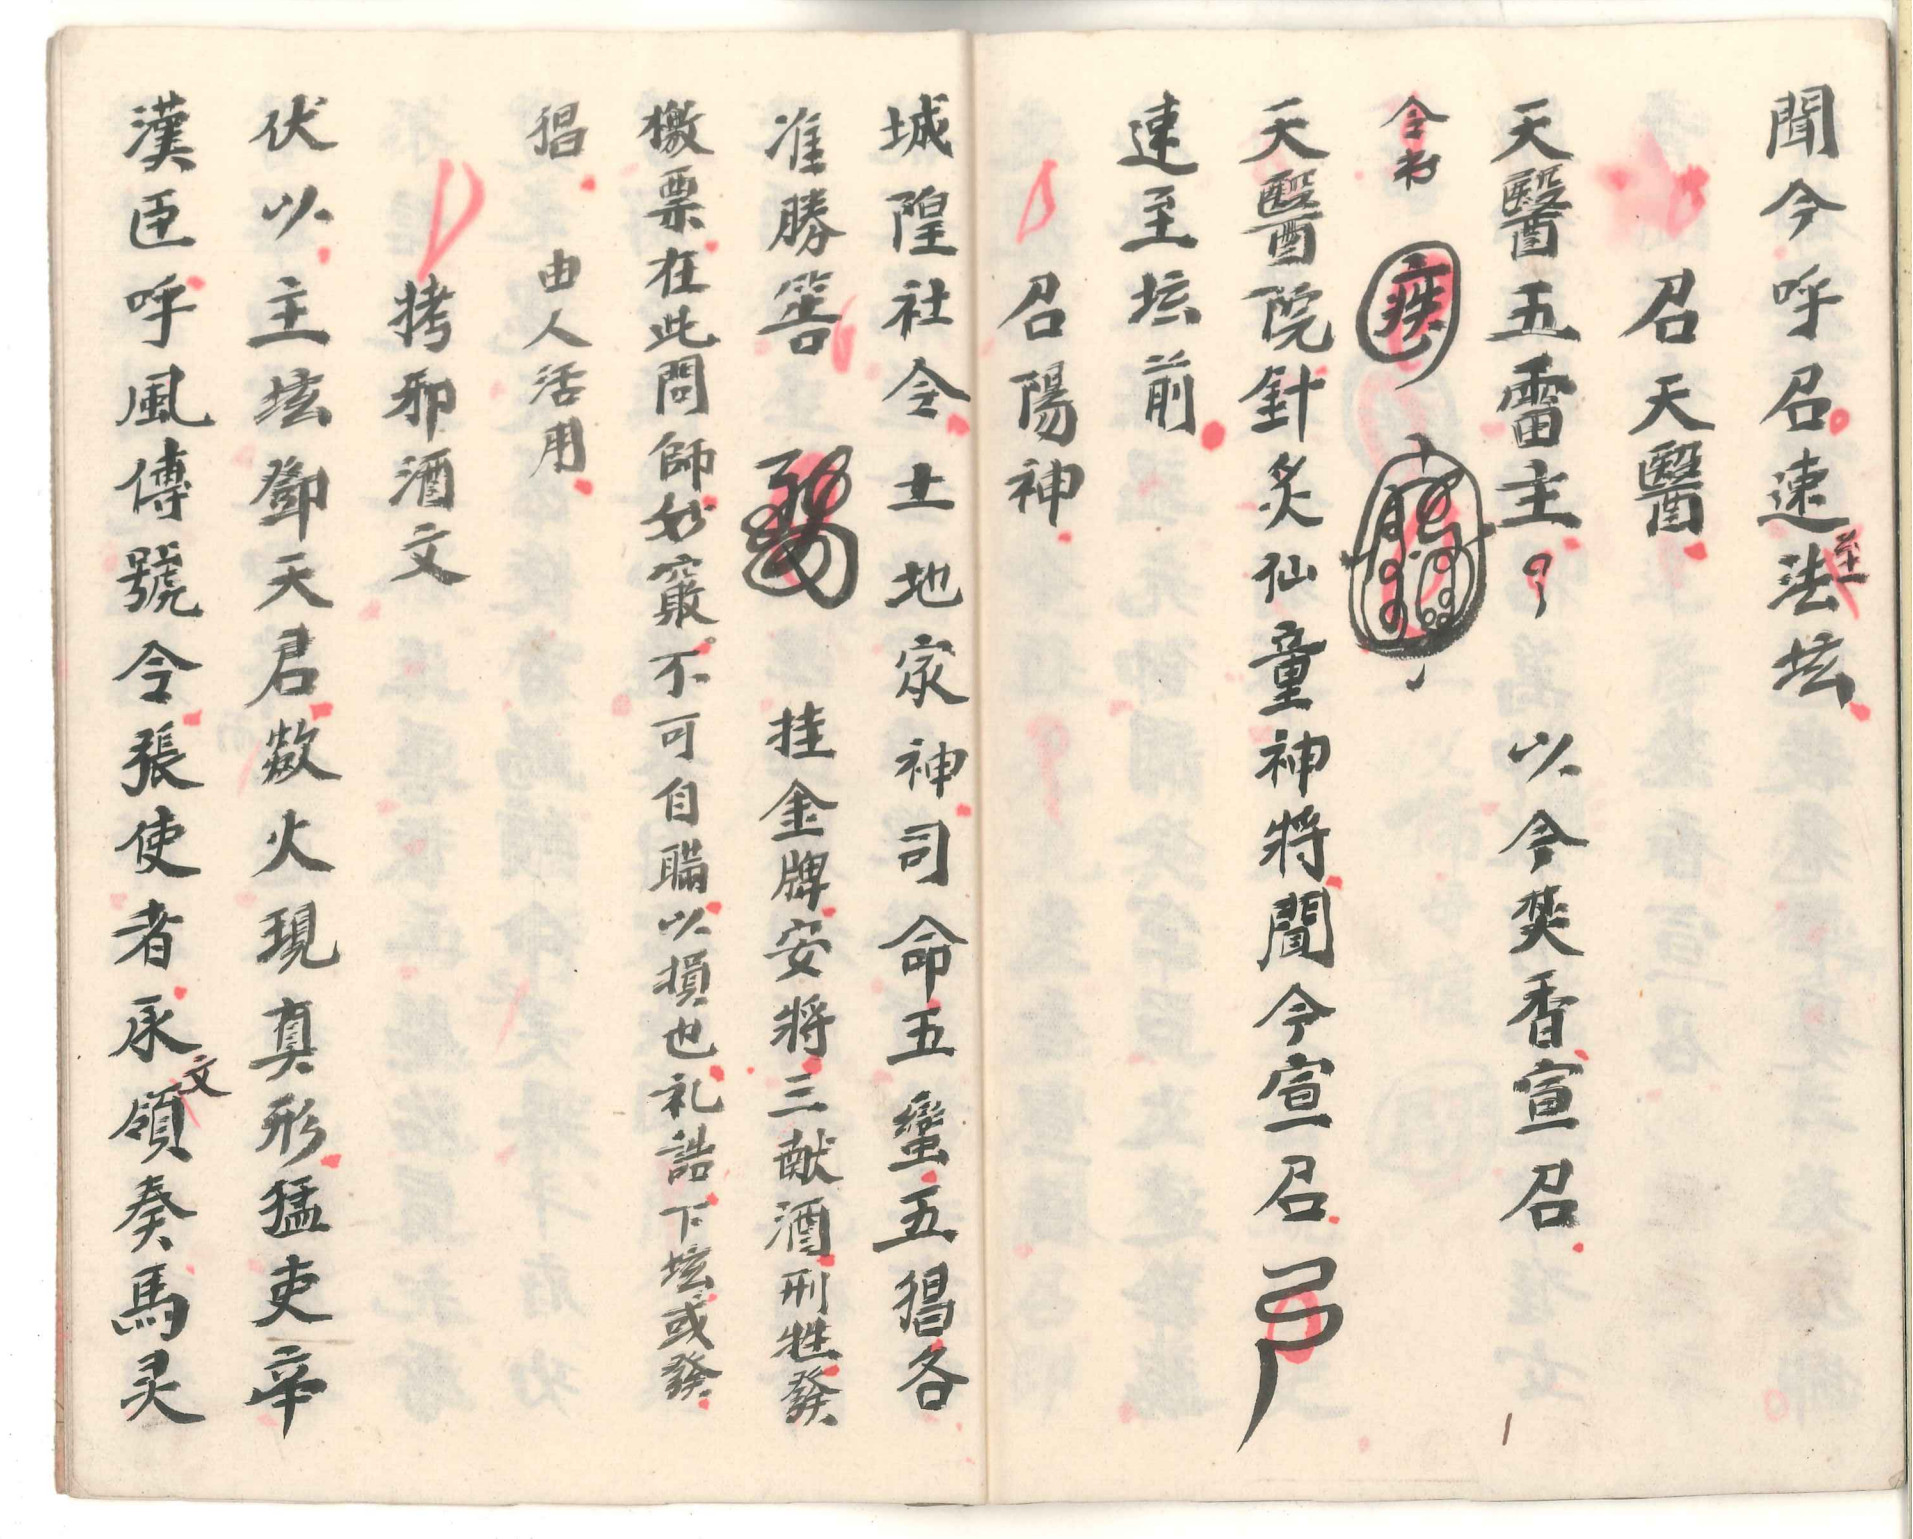 聞今呼召速至法坛
召天醫
天醫五雷主 以令焚香宣召
令书 疾
天醫院針炙仙童神將聞今宣召
速至坛前
召陽神
城隍社令土地家神司命五蛮五猖各
准勝筶 挂金牌安將三献酒刑牲發
檄票在此問師妙竅不可自瞞以損也礼誥下坛或發
猖 由人活用
拷邪酒文
伏以主坛鄧天君歘火現真形猛吏辛
漢臣呼風傳號令張使者承文領奏馬灵